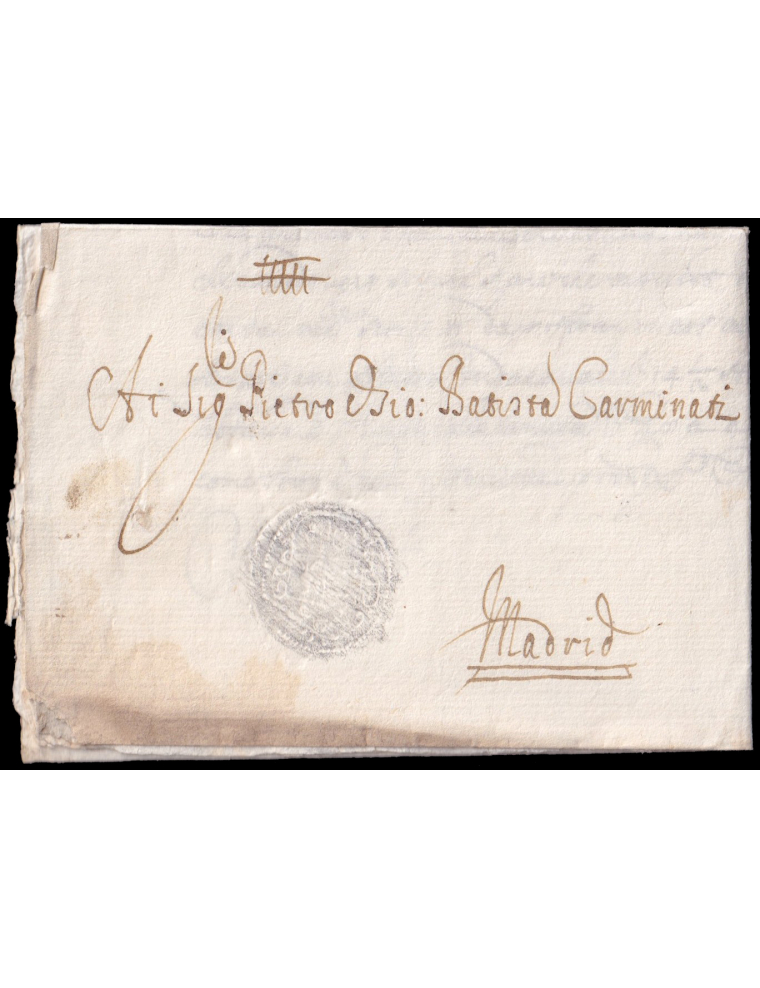 Ai Sig.ri Pietro e Gio: Batista Carminati
Madrid